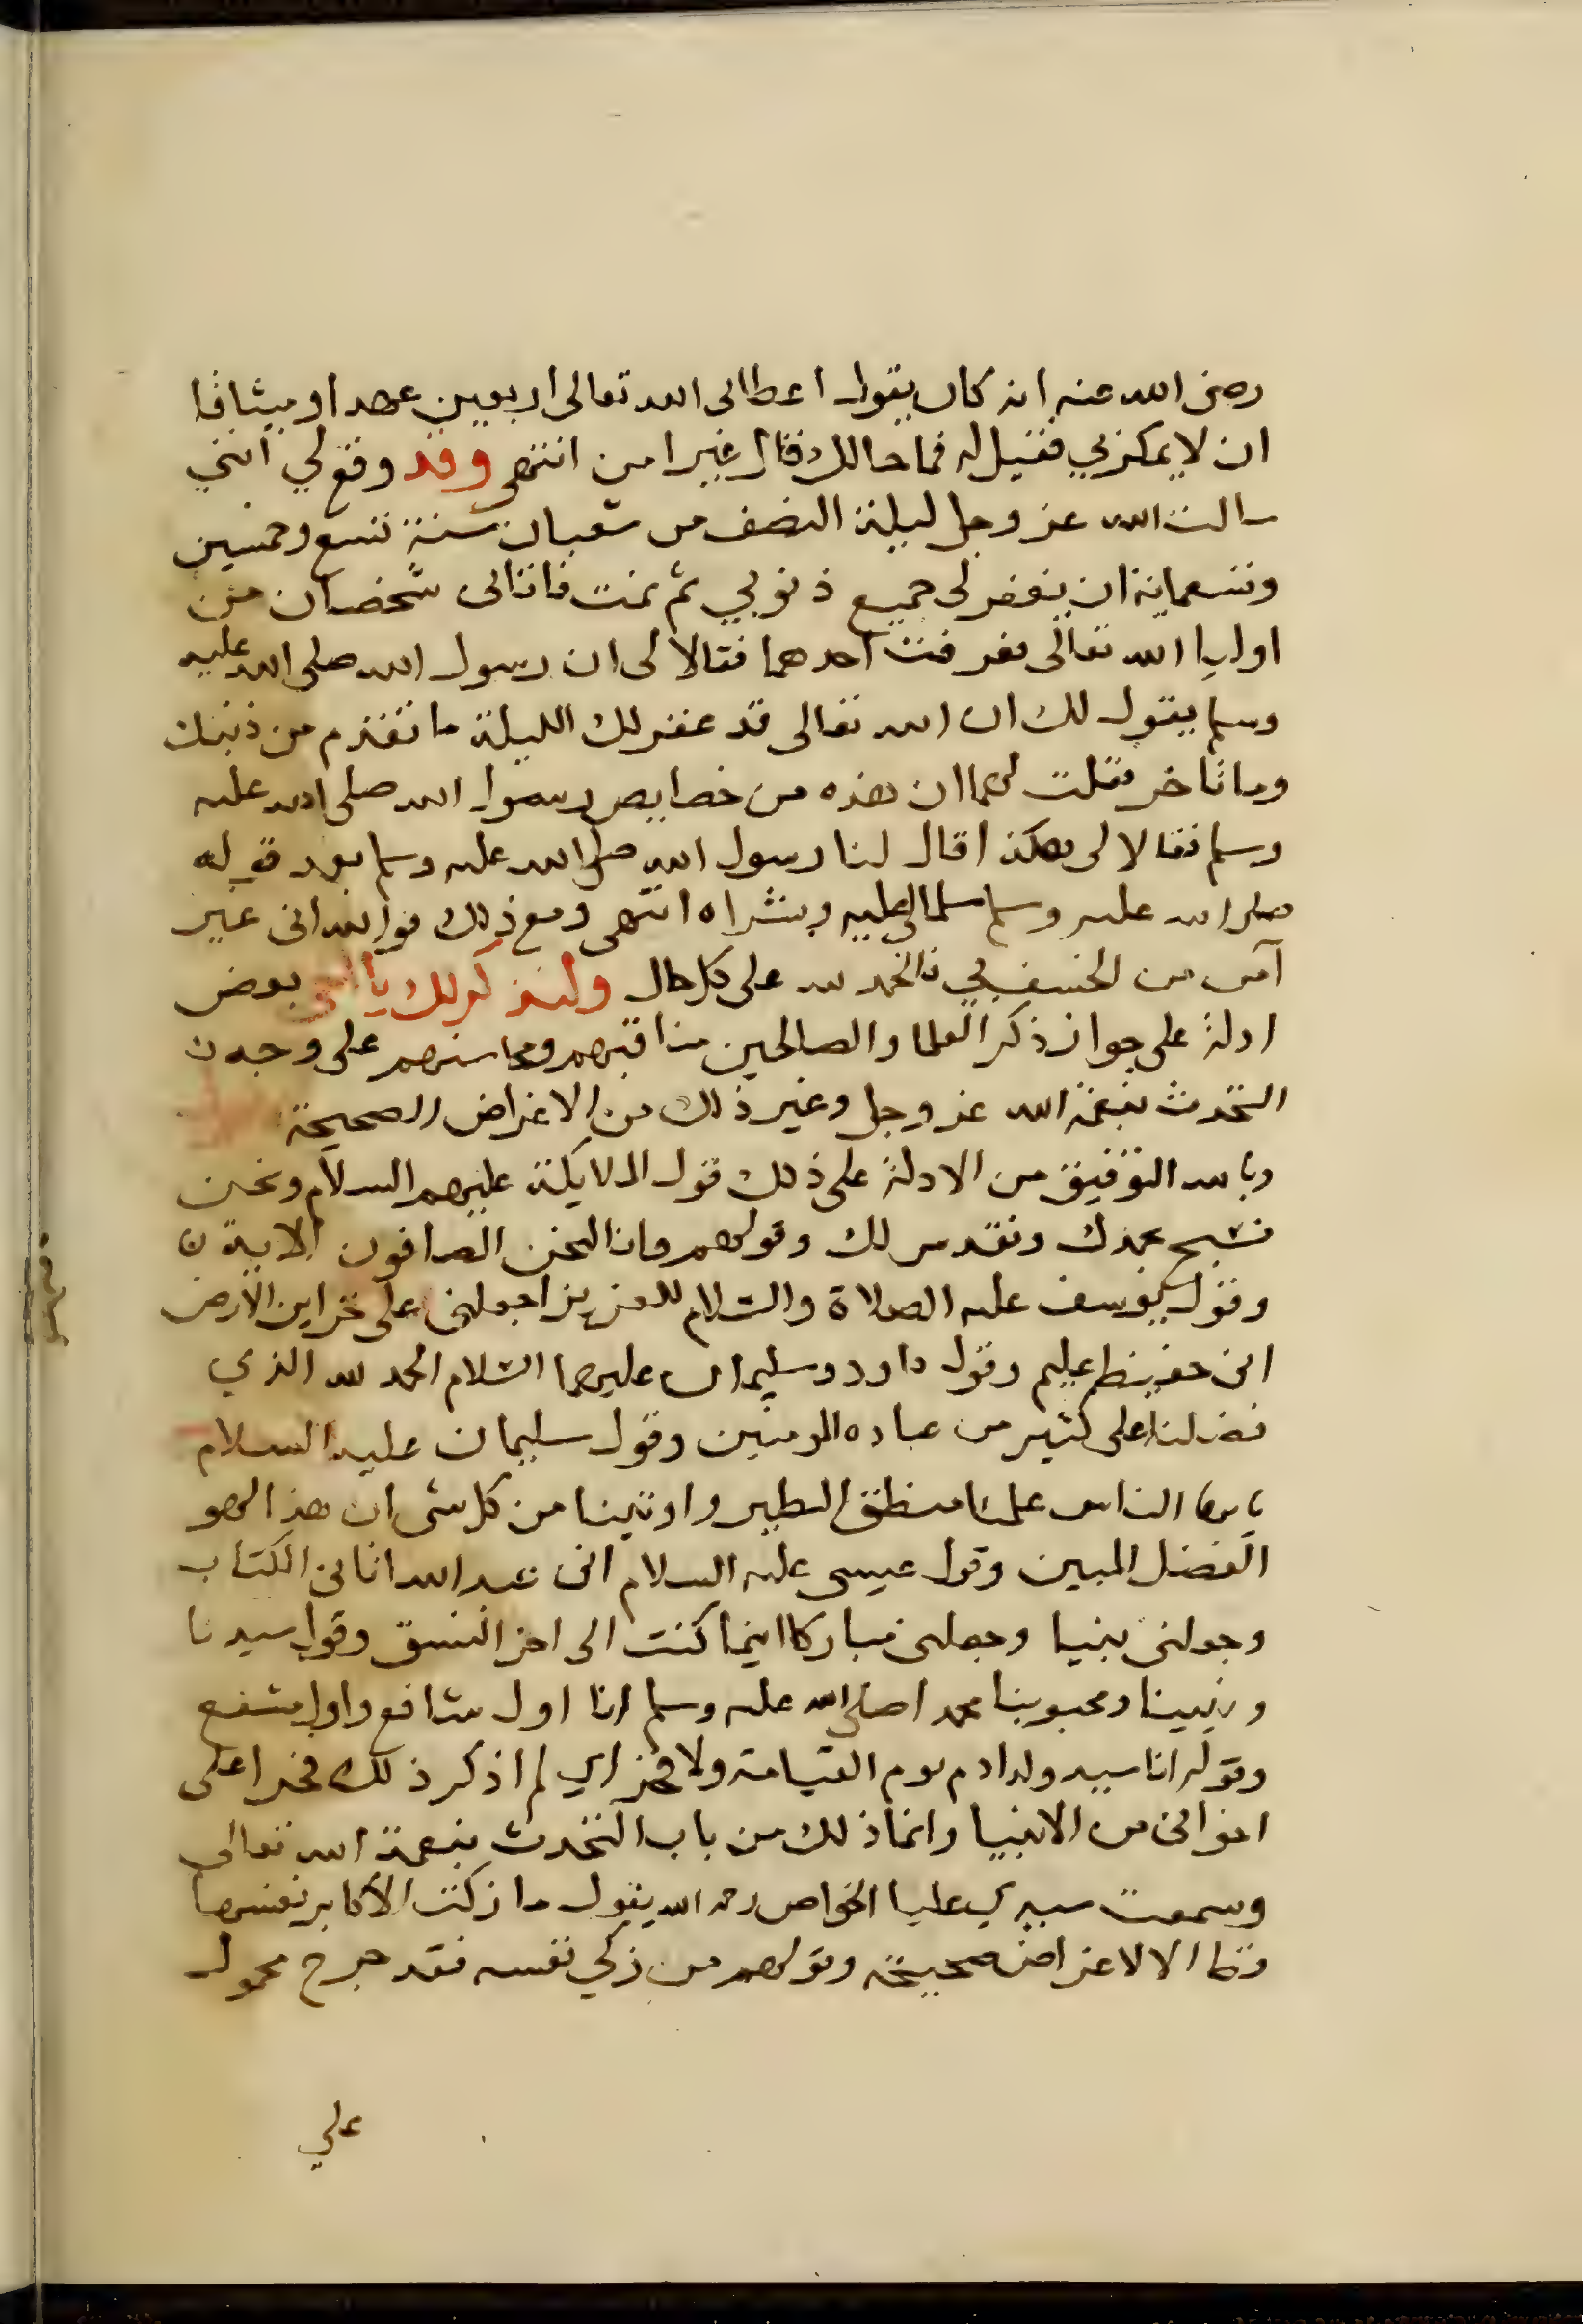 رضى الله عنه انه كان يقول اعطانى الله تعالى اربعين عهدا وميثاقا
ان لا يمكر بي فقيل له فما حالك فقال غير امن انتهى وقد وقع لي انني
سالت الله عز وجل ليلة النصف من شعبان سنة تسع وخمسين
وتسعماية ان يغفر لى جميع ذنوبي ثم نمت فاتانى شخصان من
اوليا الله تعالى فعرفت احدهما فقالا لى ان رسول الله صلى الله عليه
وسلم يقول لك ان الله تعالى قد غفر لك الليلة ما تقدم من ذنبك
وما تاخر فقلت لهما ان هذه من خصايص رسول الله صلى الله عليه
وسلم فقالا لى هكذا قال لنا رسول الله صلى الله عليه وسلم بعد قوله
صلى الله عليه وسلم سلما لى عليه وبشراه انتهى ومع ذلك فوالله انى غير
آمن من الخسف بي فالحمد لله على كل حال ولنذكر لك يا اخى بعض
ادلة على جواز ذكر العلما والصالحين مناقبهم ومحاسنهم على وجه
التحدث بنعمة الله عز وجل وغير ذلك من الاغراض الصحيحة
وبالله التوفيق من الادلة على ذلك قول الملايكة عليهم السلام ونحن
نسبح بحمدك ونقدس لك وقولهم وانا لنحن الصافون الاية
وقول يوسف عليه الصلاة والسلام للعزيز اجعلنى على خزاين الارض
انى حفيظ عليم وقول داود وسليمان عليهما السلام الحمد لله الذي
فضلنا على كثير من عباده المومنين وقول سليمان عليه السلام
يايها الناس علمنا منطق الطير واوتينا من كل شى ان هذا لهو
الفضل المبين وقول عيسى عليه السلام انى عبد الله اتانى الكتاب
وجعلنى نبيا وجعلنى مباركا اينما كنت الى اخر النسق وقول سيدنا
ونبينا ومحبوبنا محمد صلى الله عليه وسلم انا اول شافع واول مشفع
وقوله انا سيد ولد ادم يوم القيامة ولا فخر اي لم اذكر ذلك فخرا على
اخوانى من الانبيا وانما ذلك من باب التحدث بنعمة الله تعالى
وسمعت سيدي عليا الخواص رحمه الله يقول ما زكت الاكابر نفسها
قط الا لاغراض صحيحة وقولهم من زكي نفسه فقد جرح محمول
علي